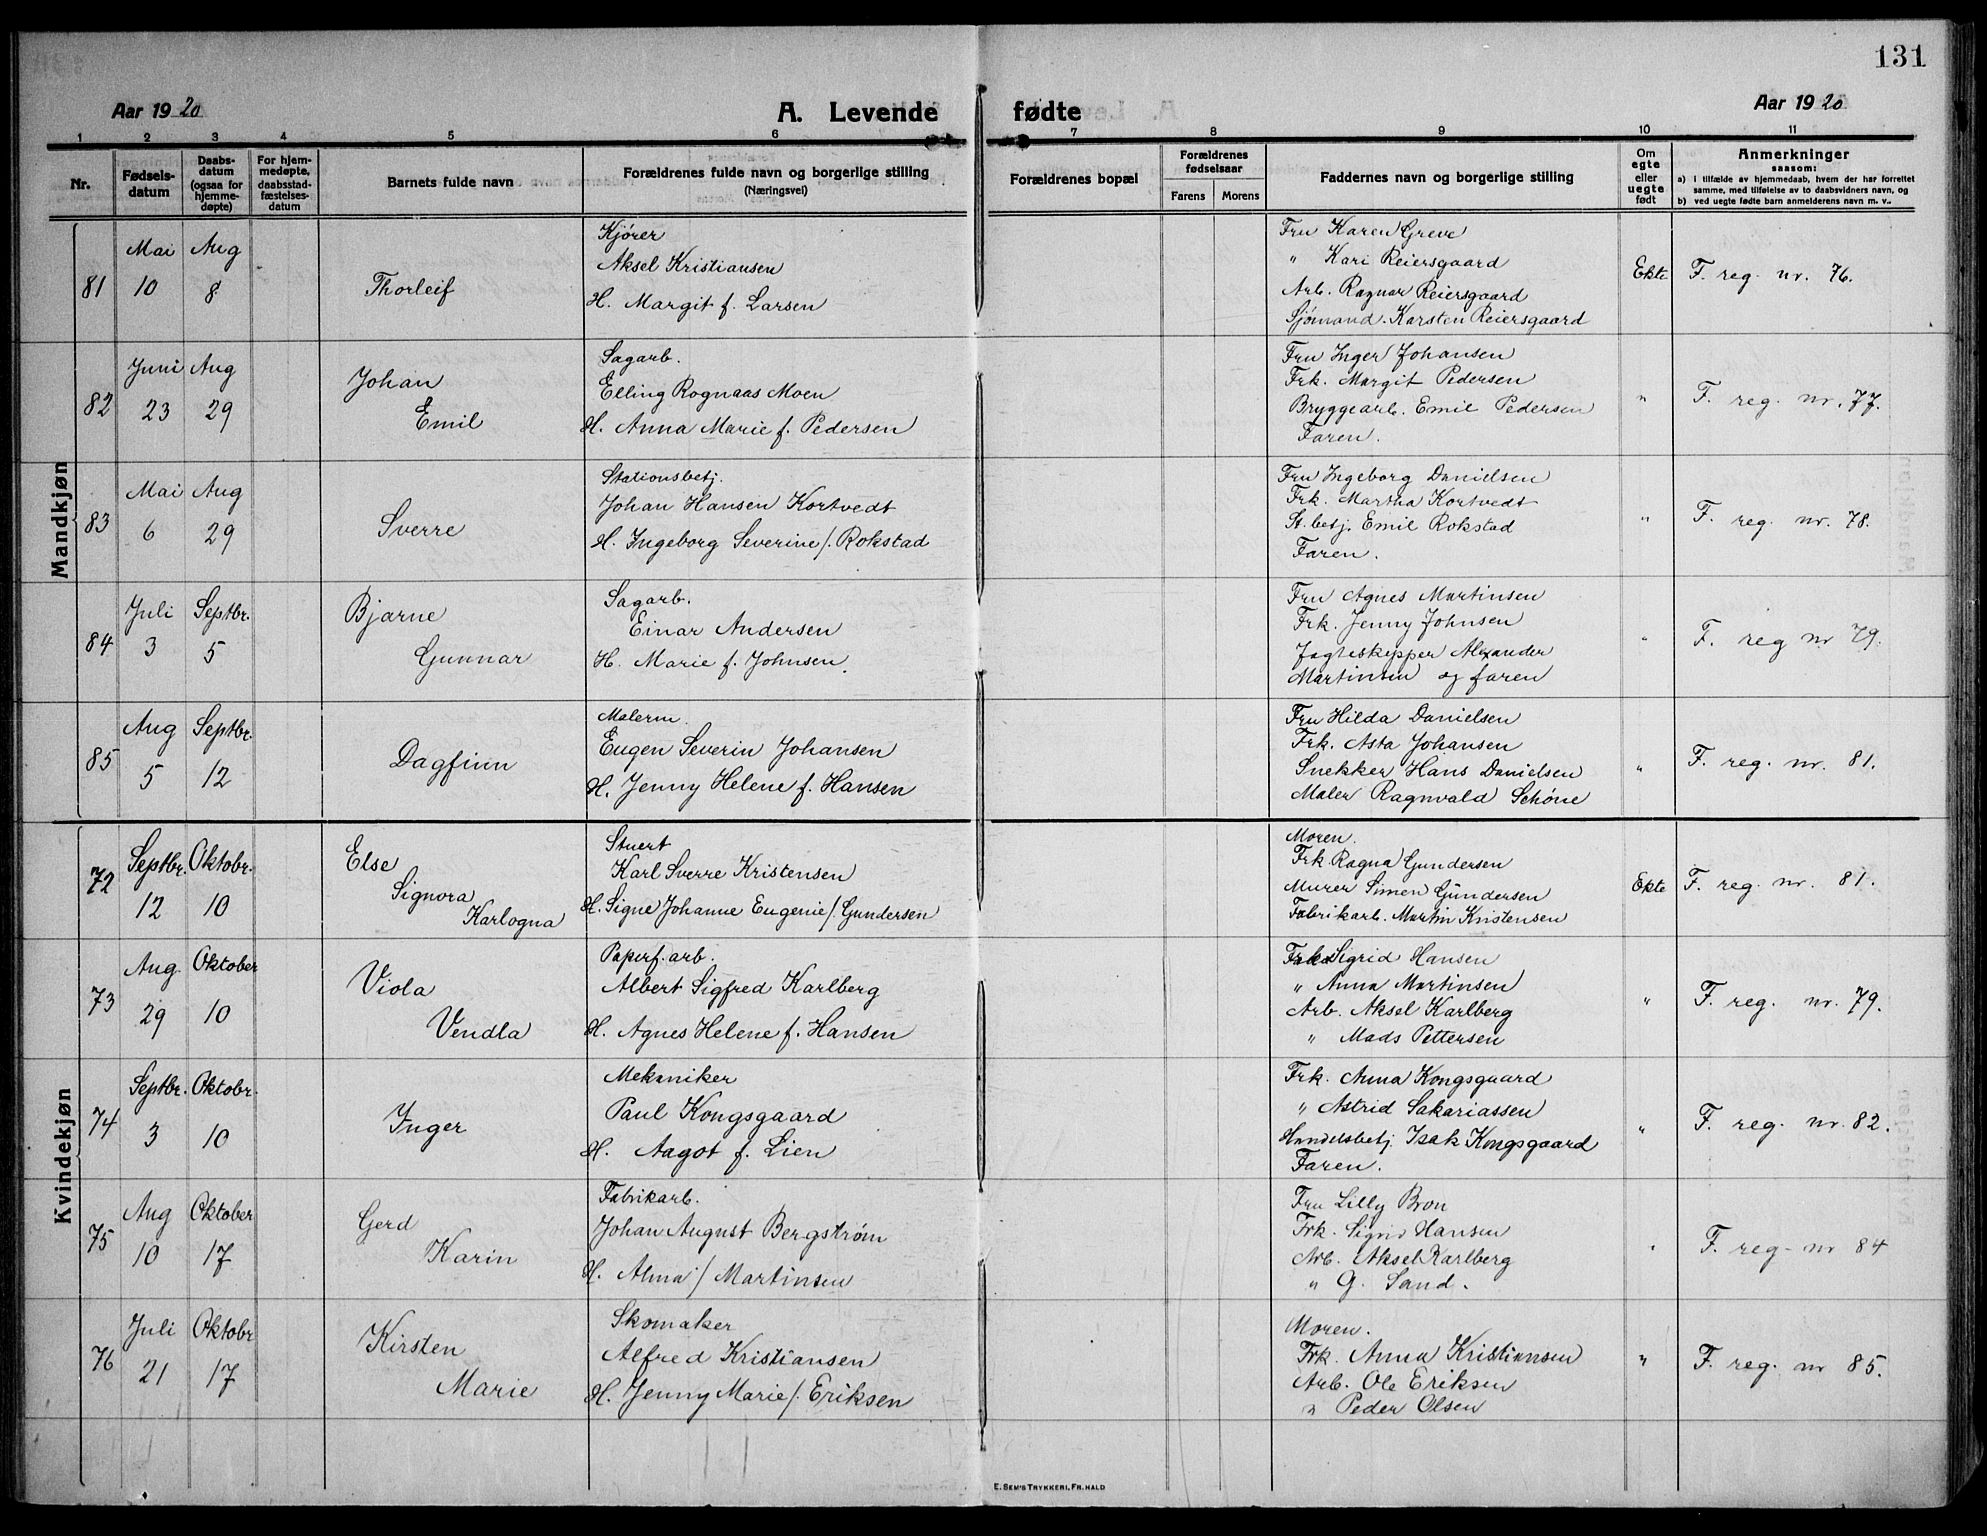 131
Aar 1920 A. Levende fødte Aar 1920
1 2 3 4 5 6 7 8 9 10 11
Nr.
Fødsels-
datum
Daabs-
datum
(ogsaa for
hjemme-
døpte)
For hjem-
medøpte,
daabsstad-
fæstelses-
datum
Barnets fulde navn
Forældrenes fulde navn og borgerlige stilling
(Næringsvei)
Forældrenes bopæl
Forældrenes
fødselsaar
Farens Morens
Faddernes navn og borgerlige stilling
Om
egte
eller
uegte
født
Anmerkninger
saasom:
a) i tilfælde av hjemmedaab, hvem der har forrettet
samme, med tilføielse av to daabsvidners navn, og
b) ved uegte fødte barn anmelderens navn m. v..
Mandkjøn
81
Mai
10
Aug
8
Thorleif
Kjører
Aksel Kristiansen
H. Margit f. Larsen
Fru Karen Greve
" Kari Reiersgaard
Arb. Ragnar Reiersgaard
Sjømand. Karsten Reiersgaard
Ekte
F. reg. nr. 76.
82
Juni
23
Aug
29
Johan
Emil
Sagarb.
Elling Rognaas Moen
H. Anna Marie f. Pedersen
Fru Inger Johansen
Frk. Margit Pedersen
Bryggearb. Emil Pedersen
Faren.
"
F. reg. nr. 77.
83
Mai
6
Aug
29
Sverre
Stationsbetj.
Johan Hansen Kortvedt
H. Ingeborg Severine f. Rokstad
Fru Ingeborg Danielsen
Frk. Martha Kortvedt
St. betj. Emil Rokstad
Faren.
"
F. reg. nr. 78.
84
Juli
3
Septbr.
5
Bjarne
Gunnar
Sagarb.
Einar Andersen
H. Marie f. Johnsen.
Fru Agnes Martinsen
Frk. Jenny Johnsen
Jagteskypper Alexander
Martinsen og faren
"
F. reg nr 79.
85
Aug
5
Septbr.
12
Dagfinn
Malerm.
Eugen Severin Johansen
H. Jenny Helene f. Hansen
Fru Hilda Danielsen
Frk. Asta Johansen
Snekker Hans Danielsen
Maler Ragnvald Schøne
"
F. reg. nr. 81.
Kvindekjøn
72
Septbr.
12
Oktobr.
10
Else
Signora
Karlogna
Stuert
Karl Sverre Kristensen
H. Signe Johanne Eugenie f. Gundersen
Moren.
Frk. Ragna Gundersen
Murer Simen Gundersen
Fabrikarb. Martin Kristensen
Ekte
F. reg. nr. 81.
73
Aug.
29
Oktober
10
Viola
Vendla
Papirf. arb.
Albert Sigfred Karlberg
H. Agnes Helene f. Hansen
Frk. Sigrid Hansen
" Anna Martinsen
Arb. Aksel Karlberg
" Mads Pettersen
"
F. reg. nr. 79.
74
Septbr.
3
Oktobr.
10
Inger
Mekaniker
Paul Kongsgaard
H. Aagot f. Lien
Frk. Anna Kongsgaard
" Astrid Sakariassen
Handelsbetj. Isak Kongsgaard
Faren.
"
F. reg. nr. 82.
75
Aug
10
Oktober
17
Gerd
Karin
Fabrikarb.
Johan August Bergstrøm
H. Alma f. Martinsen
Fru Lilly Bron
Frk. Sigrid Hansen
Arb. Aksel Karlberg
" G. Sand.
"
F. reg- nr 84
76
Juli
21
Oktobr
17
Kirsten
Marie
Skomaker
Alfred Kristiansen
H. Jenny Marie f. Eriksen
Moren.
Frk. Anna Kristiansen
Arb. Ole Eriksen
" Peder Olsen
"
F. reg. nr 85.
E. SEM'S TRYKKERI, FR. HALD